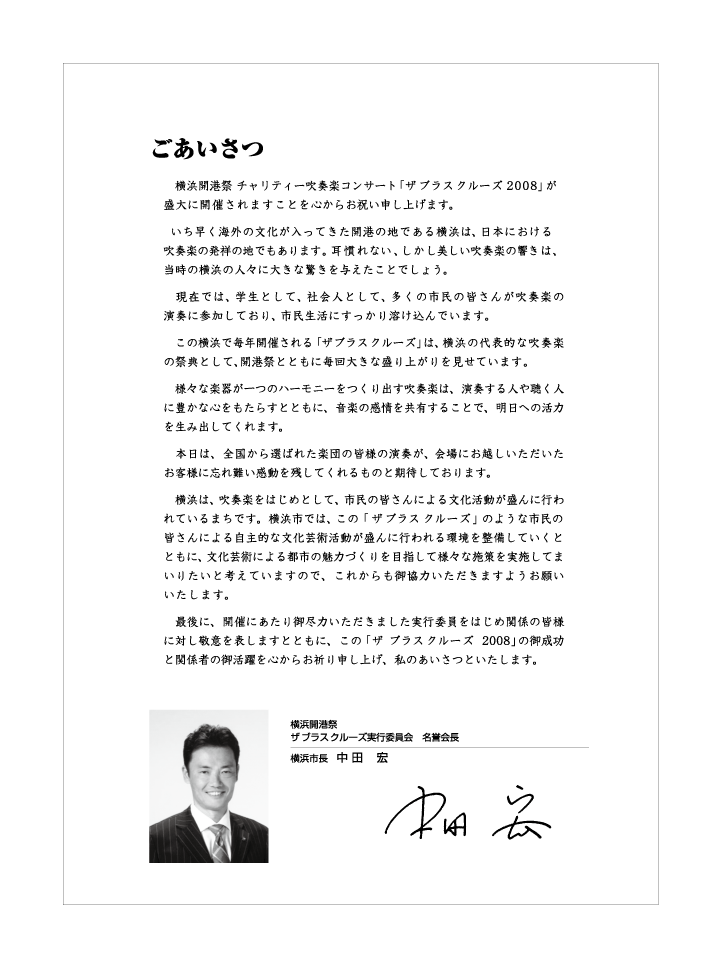 ごあいさつ
横浜開港祭 チャリティー吹奏楽コンサート「ザ ブラス クルーズ 2008」が
盛大に開催されますことを心からお祝い申し上げます。
いち早く海外の文化が入ってきた開港の地である横浜は、日本における
吹奏楽の発祥の地でもあります。耳慣れない、しかし美しい吹奏楽の響きは、
当時の横浜の人々に大きな驚きを与えたことでしょう。
現在では、学生として、社会人として、多くの市民の皆さんが吹奏楽の
演奏に参加しており、市民生活にすっかり溶け込んでいます。
この横浜で毎年開催される「ザブラスクルーズ」は、横浜の代表的な吹奏楽
の祭典として、開港祭とともに毎回大きな盛り上がりを見せています。
様々な楽器が一つのハーモニーをつくり出す吹奏楽は、演奏する人や聴く人
に豊かな心をもたらすとともに、音楽の感情を共有することで、明日への活力
を生み出してくれます。
本日は、全国から選ばれた楽団の皆様の演奏が、会場にお越しいただいた
お客様に忘れ難い感動を残してくれるものと期待しております。
横浜は、吹奏楽をはじめとして、市民の皆さんによる文化活動が盛んに行わ
れているまちです。横浜市では、この「ザ ブラス クルーズ」のような市民の
皆さんによる自主的な文化芸術活動が盛んに行われる環境を整備していくと
ともに、文化芸術による都市の魅力づくりを目指して様々な施策を実施してま
いりたいと考えていますので、これからも御協力いただきますようお願い
いたします。
最後に、開催にあたり御尽力いただきました実行委員をはじめ関係の皆様
に対し敬意を表しますとともに、この「ザ ブラス クルーズ 2008」の御成功
と関係者の御活躍を心からお祈り申し上げ、私のあいさつといたします。
横浜開港祭
ザ ブラス クルーズ実行委員会 名誉会長
横浜市長 中田 宏
中田 宏